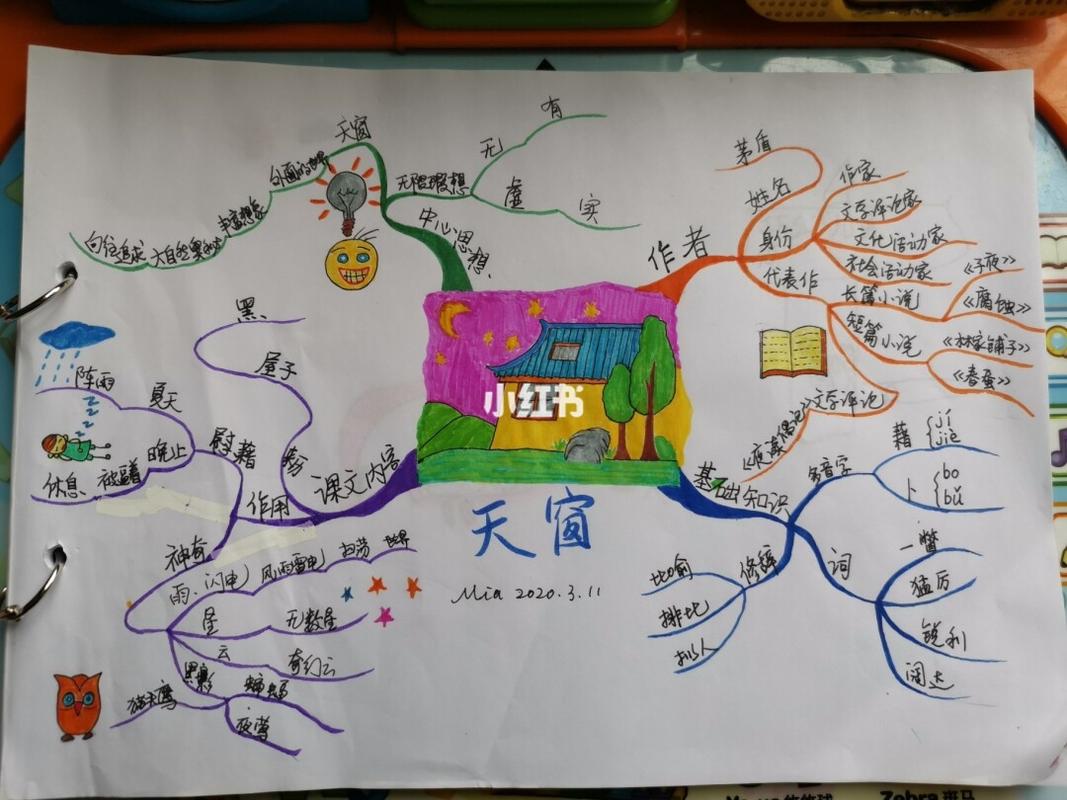 天窗
外面的世界
丰富想象
大自然奥秘
向往追求
无限遐想
无
有
虚
实
中心思想
作者
姓名
茅盾
身份
作家
文学评论家
文化活动家
社会活动家
代表作
长篇小说
《子夜》
《腐蚀》
短篇小说
《林家铺子》
《春蚕》
文学评论
《夜读偶记》
基础知识
多音字
藉
jí
jiè
卜
bo
bǔ
词
一瞥
猛厉
锐利
阔达
修辞
比喻
排比
拟人
课文内容
屋子
黑
作用
慰藉
夏天
阵雨
晚上
被逼着
休息
神奇
雨、闪电
风雨雷电
扫荡
世界
星
无数星
云
奇幻云
黑影
蝙蝠
夜莺
猫头鹰
小红书
天窗
Mia 2020.3.11
Zebra 斑马